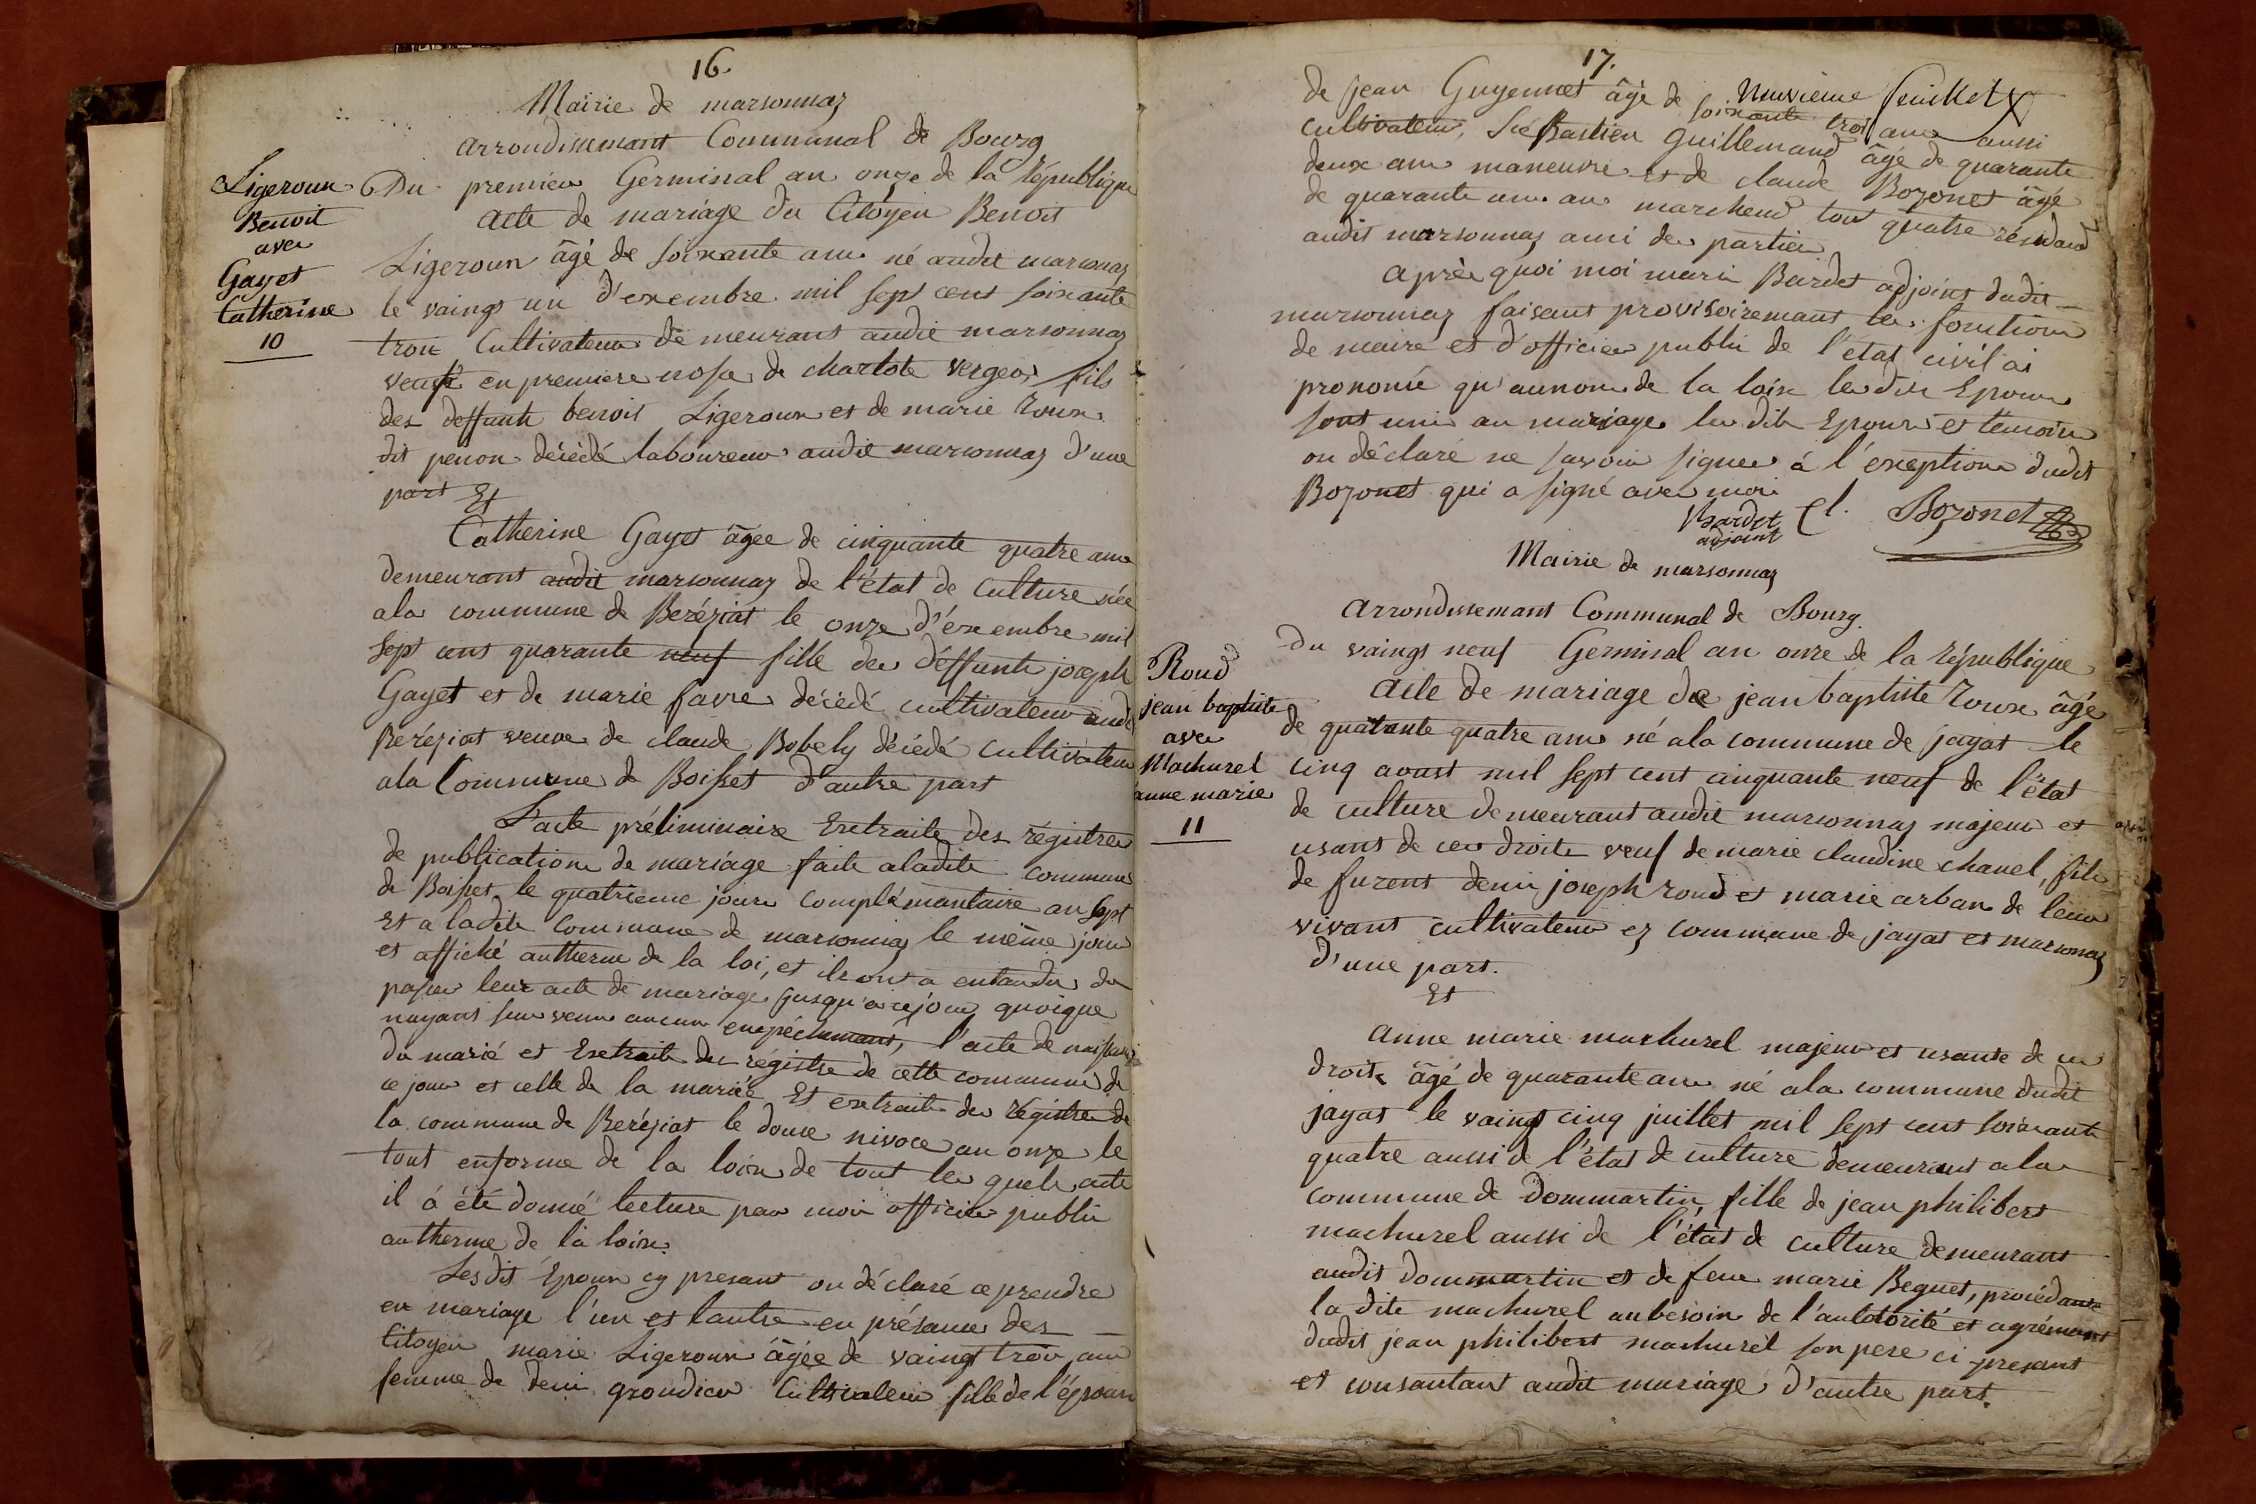 16.
Mairie de marsonnaz
arrondissemant Communal de Bourg
Ligeroun
Benoit
avec
Gayet
Catherine
10
Du premier Germinal an onze de la république
acte de mariage du Citoyen Benoit
Ligeroun âgé de soixante ans né audit marsonnaz
le vaingt un d'exembre mil sept cent soixante
trois Cultivateur de meurant audit marsonnaz
veuf en premiere nosse de charlote vergeo fils
des deffunts benoit Ligeroun et de marie roux
dit penon décédé laboureur audit marsonnaz d'une
part Et
Catherine Gayet âgée de cinquante quatre ans
demeurant audit marsonnaz de l'état de culture née
a la commune de Beréziat le onze d'éxembre mil
sept cens quarante neuf fille des déffunts joseph
Gayet et de marie favre décédé cultivateur audit
Beréziat veuve de claude Bobely décédé cultivateur
a la Commune de Boisset d'autre part
L'acte préliminaire Extraite des régistres
de publication de mariage faite aladite commune
de Boisset le quatrieme jour complémantaire an sept
Et a ladite Commune de marsonnaz le même jour
et affiché autherme de la loi, et ils ont a entandu de
passer leur acte de mariage jusqu'a ce jour quoique
nayant survenu aucun empéchemant, l'acte de naissance
du marié et Extraite des régistre de cette commune de
ce jour et celle de la mariée Et extraite des régistre de
la commune de Beréziat le douze nivoce an onze le
tout enforme de la loix de tout les quels acte
il á été donné lecture par moi officier public
autherme de la loix.
Lesdit Epoux cy presant on déclaré ce prendre
en mariage l'un et lautre en présance des
Citoyen marie Ligeroun âgée de vaingt trois ans
femme de denis grondier Cultivateur fille de l'époux
17.
Neuvieme feuillet
de jean Guyennet âgé de soixante trois ans aussi
cultivateur, Sébastien Guillemaud âgé de quarante
deux ans maneuvre et de claude Bozonet âgé
de quarante un ans marchand tout quatre résidand
audit marsonnaz ami des parties
après quoi moi marie Bardet adjoint dudit
marsonnaz faisant provisoiremant les fonctions
de maire et d'officier public de l'état civil ai
prononcé qu'aunom de la loix les dits Epoux
sont unis au mariage les dits Epoux et temoins
on déclaré ne savoir signer á l'exception dudit
Bozonet qui a signé avec moi
Bardet
adjoint
Cl. Bozonet
Mairie de marsonnaz
arrondissemant Communal de Bourg
Roud
jean baptiste
avec
Machurel
anne marie
11
du vaingt neuf Germinal an onze de la république
acte de mariage de jean baptiste roux âgé
de quarante quatre ans né a la commune de jayat le
cinq aoust mil sept cent cinquante neuf de l'état
de culture demeurant audit marsonnaz majeur et
usant de ces droits veuf de marie claudine chanel, fils
de furent denis joseph roud et marie arban de leur
vivant cultivateur ez commune de jayat et marsonnaz
d'une part.
Et
anne marie machurel majeur et usante de ces
droits âgé de quarante ans né a la commune dudit
jayat le vaingt cinq juillet mil sept cent soixante
quatre aussi de l'état de culture demeurant a la
commune de Dommartin, fille de jean philibert
machurel aussi de l'état de culture demeurant
audit dommartin et de feue marie Beguet, procédante
la dite machurel aubesoin de l'authorité et agrémant
dudit jean philibert machurel son pere ci presant
et consantant audit mariage d'autre part.